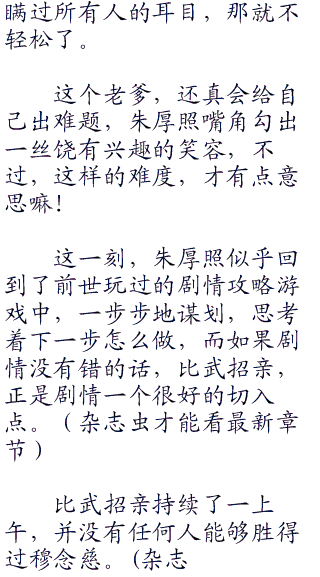 瞒过所有人的耳目，那就不
轻松了。
这个老爹，还真会给自
己出难题，朱厚照嘴角勾出
一丝饶有兴趣的笑容，不
过，这样的难度，才有点意
思嘛！
这一刻，朱厚照似乎回
到了前世玩过的剧情攻略游
戏中，一步步地谋划，思考
着下一步怎么做，而如果剧
情没有错的话，比武招亲，
正是剧情一个很好的切入
点。（杂志虫才能看最新章
节）
比武招亲持续了一上
午，并没有任何人能够胜得
过穆念慈。(杂志